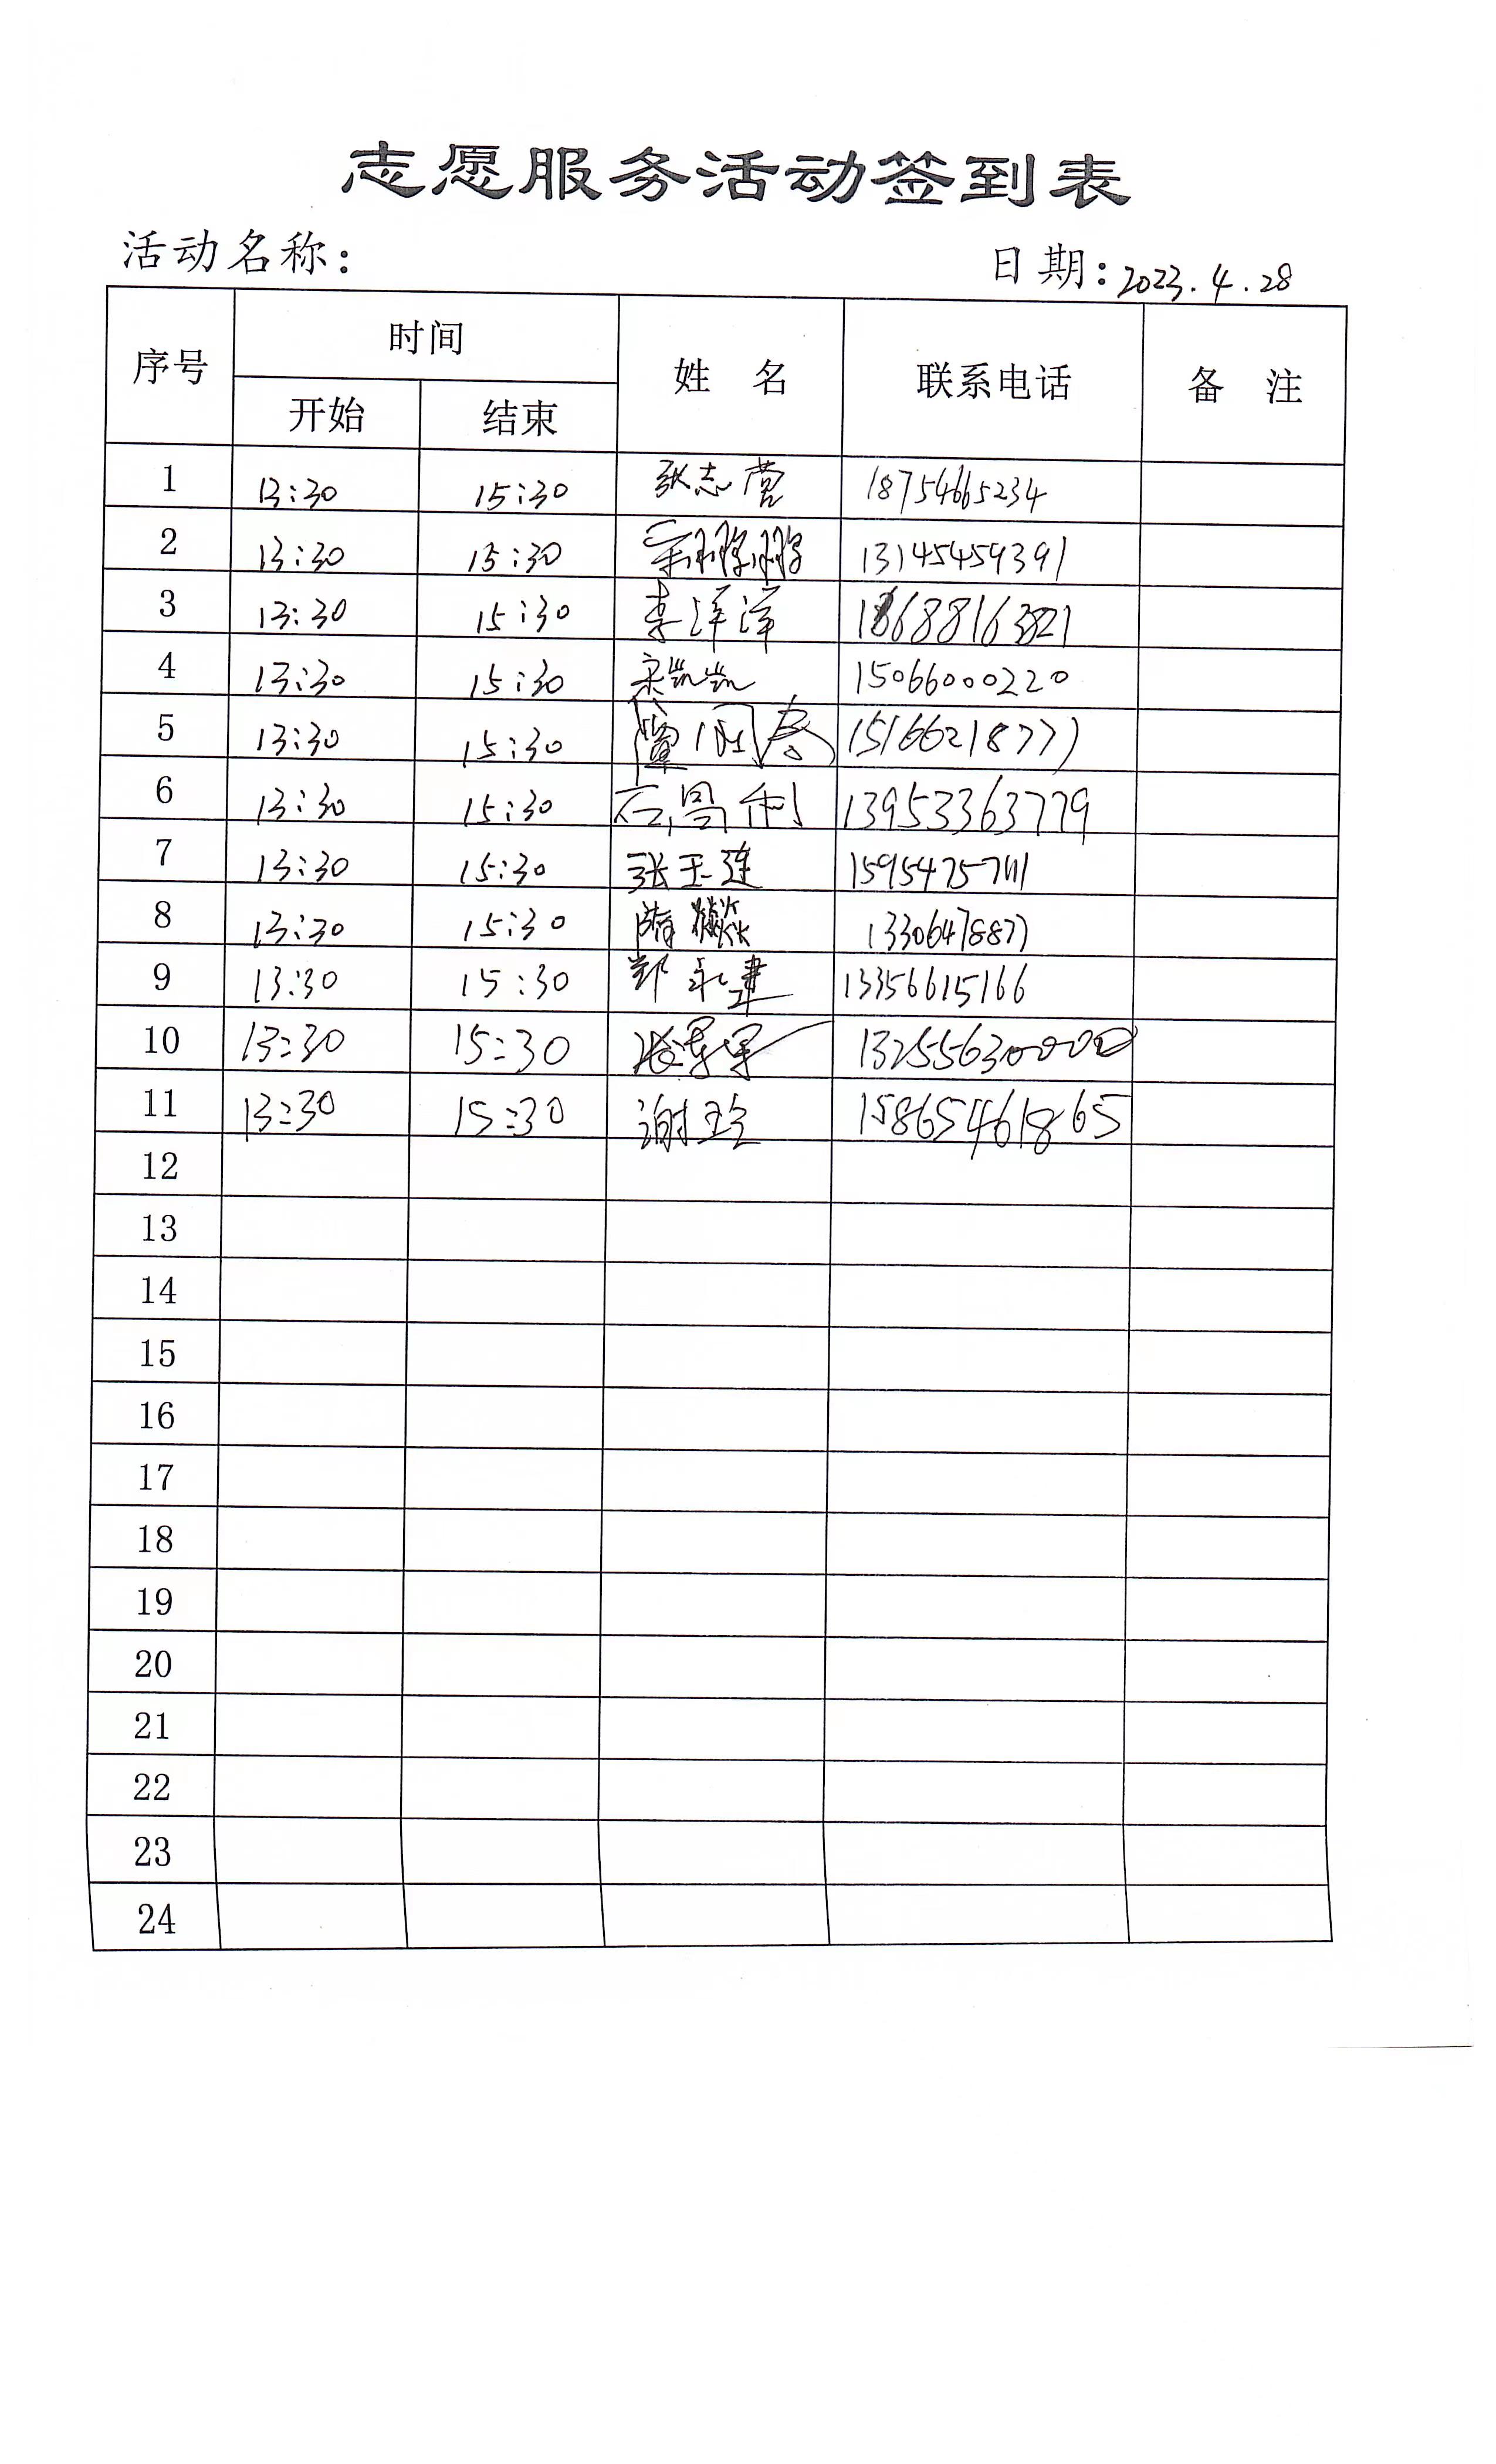 志愿服务活动签到表
活动名称： 日期：2023.4.28
序号 时间 姓 名 联系电话 备 注
开始 结束
1 13:30 15:30 张志营 18754665234
2 13:30 15:30 宗鹏鹏 13145459391
3 13:30 15:30 李洋洋
4 13:30 15:30 宋凯凯 15066000220
5 13:30 15:30 15166218777
6 13:30 15:30 石昌利 13953363779
7 13:30 15:30 张玉莲
8 13:30 15:30 隋 13306478877
9 13:30 15:30 郑永建 13356615166
10 13:30 15:30 13255630000
11 13:30 15:30 谢玲 15865461865
12
13
14
15
16
17
18
19
20
21
22
23
24